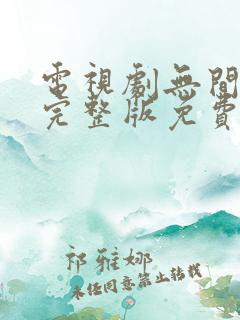 電視劇無間
完整版免費
祁雅娜
未經同意禁止轉載